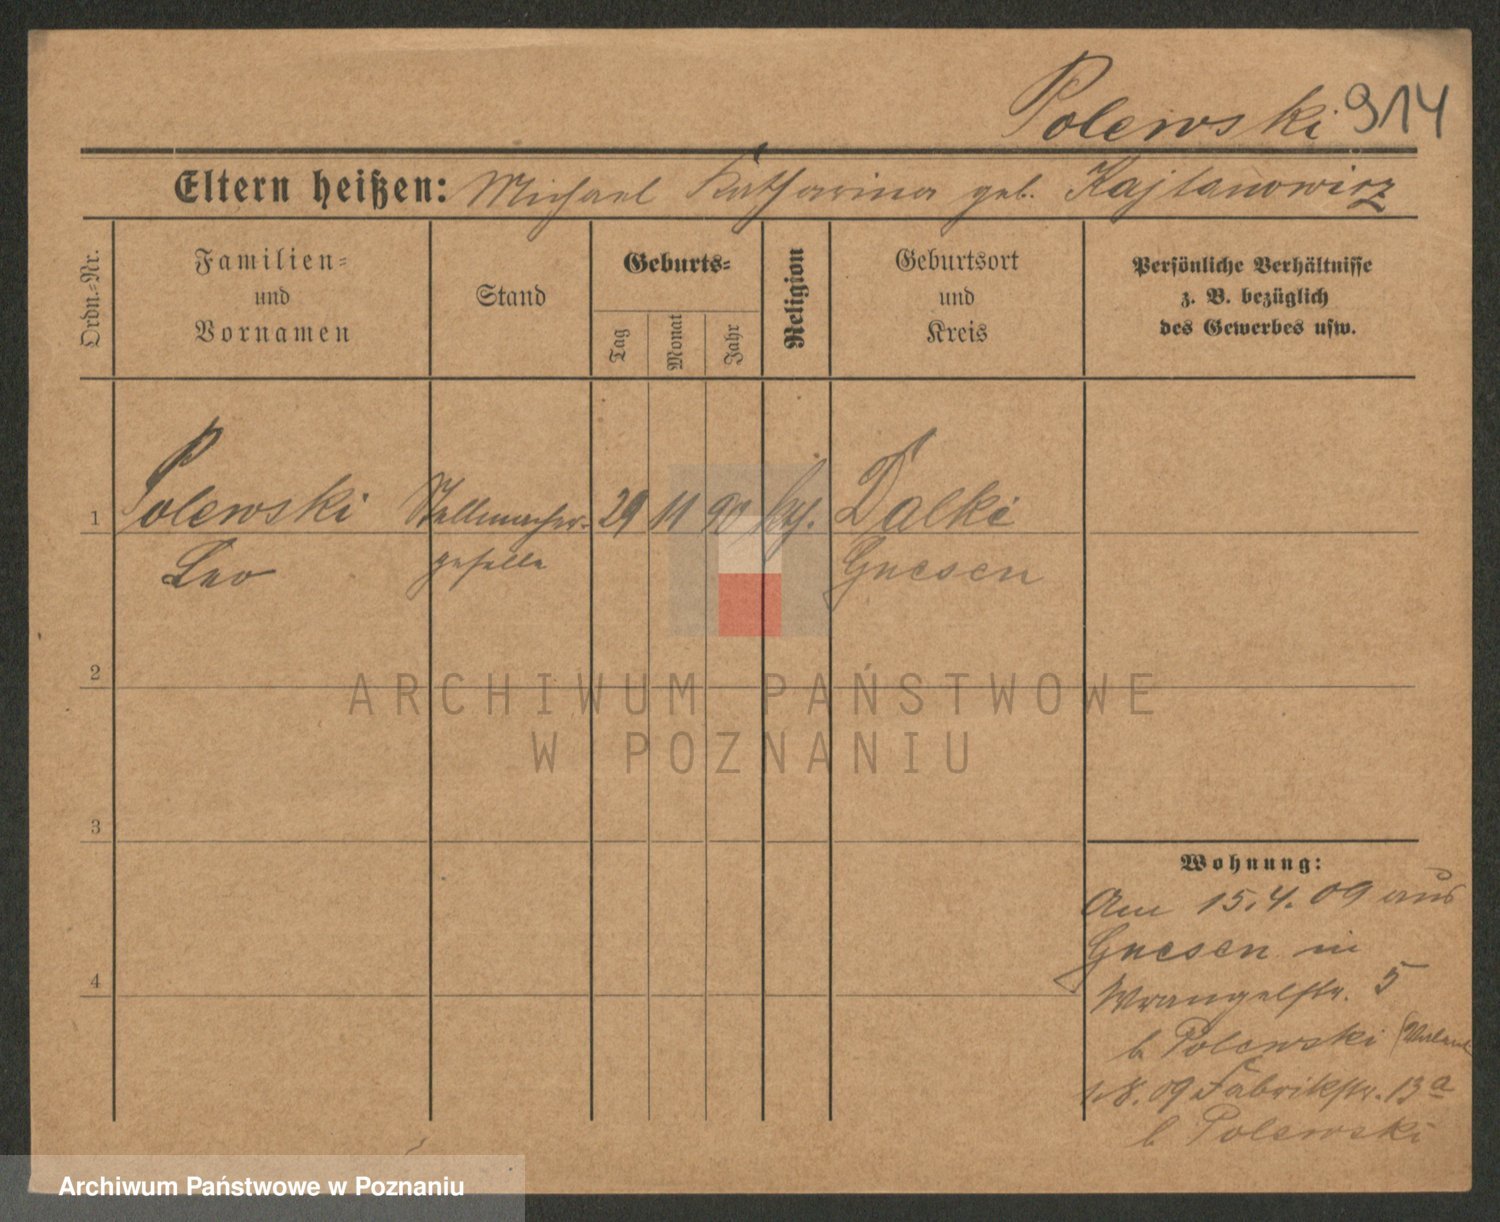 Polewski 914
Eltern heißen: Michael Katharina geb. Kajtanowicz
Ordn.-Nr.
Familien-
und
Vornamen
Stand
Geburts-
Tag
Monat
Jahr
Religion
Geburtsort
und
Kreis
Persönliche Verhältnisse
z. B. bezüglich
des Gewerbes usw.
1 Polewski Stellmacher- 29 11 90 kth. Dalki
Leo geselle Gnesen
2
3
4
Wohnung:
Am 15.4.09 aus
Gnesen in
Wrangelstr. 5
b Polewski
1.8.09 Fabrikstr. 13a
b Polewski
ARCHIWUM PAŃSTWOWE
W POZNANIU
Archiwum Państwowe w Poznaniu